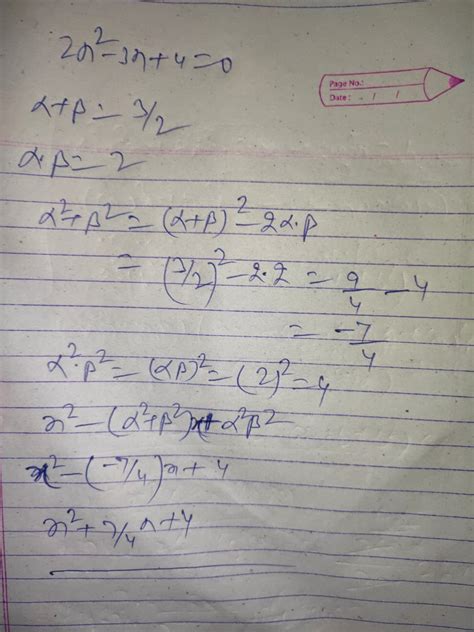 2x²-3x+4=0
Page No.:
Date: / /
α+β=3/2
α·β=2
α²+β²=(α+β)²-2α·β
=(3/2)²-2·2=9/4-4
=-7/4
α²·β²=(αβ)²=(2)²=4
x²-(α²+β²)x+α²β²
x²-(-7/4)x+4
x²+7/4x+4